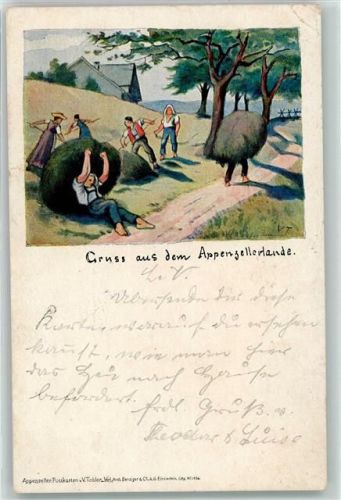 V.T.
Gruss aus dem Appenzellerlande.
L. V.
Übersende dir diese
Karte, worauf du ersehen
kannst, wie man hier
das Heu nach Hause
befördert.
frdl. Gruß v.
Theodor & Luise
Appenzeller Postkarten v. V. Tobler. Verl. Benziger & Co. A.G. Einsiedeln.